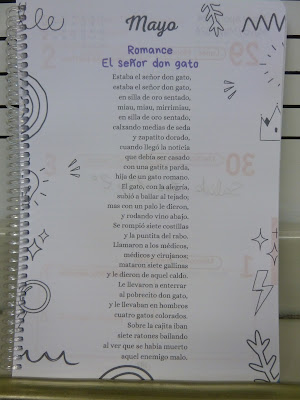 Mayo
Romance
El señor don gato
Estaba el señor don gato,
estaba el señor don gato,
en silla de oro sentado,
miau, miau, mirrimiau,
en silla de oro sentado,
calzando medias de seda
y zapatito dorado,
cuando llegó la noticia
que debía ser casado
con una gatita parda,
hija de un gato romano.
El gato, con la alegría,
subió a bailar al tejado;
mas con un palo le dieron,
y rodando vino abajo.
Se rompió siete costillas
y la puntita del rabo.
Llamaron a los médicos,
médicos y cirujanos;
mataron siete gallinas
y le dieron de aquel caldo.
Le llevaron a enterrar
al pobrecito don gato,
y le llevaban en hombros
cuatro gatos colorados.
Sobre la cajita iban
siete ratones bailando
al ver que se había muerto
aquel enemigo malo.
29
30
1